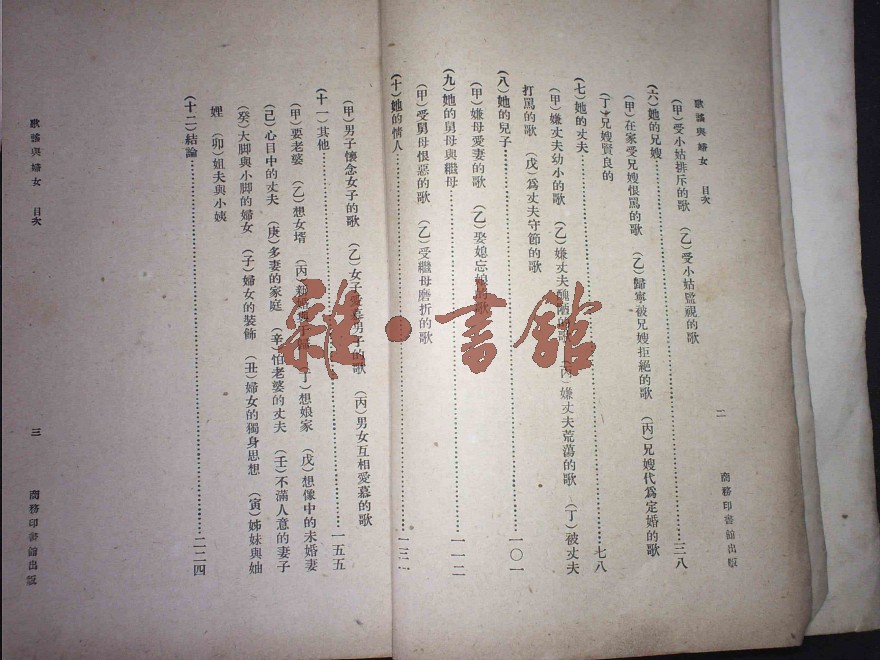 歌謠與婦女　目次
二
商務印書館出版
（甲）受小姑排斥的歌　（乙）受小姑監視的歌
（六）她的兄嫂…………三八
（甲）在家受兄嫂恨罵的歌　（乙）歸寧被兄嫂拒絕的歌　（丙）兄嫂代爲定婚的歌
（丁）兄嫂賢良的
（七）她的丈夫…………七八
（甲）嫌丈夫幼小的歌　（乙）嫌丈夫醜陋的歌　（丙）嫌丈夫荒蕩的歌　（丁）被丈夫
打罵的歌　（戊）爲丈夫守節的歌
（八）她的兒子…………一〇一
（甲）嫌母愛妻的歌　（乙）娶媳忘娘的歌
（九）她的舅母與繼母…………一一二
（甲）受舅母恨惡的歌　（乙）受繼母磨折的歌
（十）她的情人…………一三一
（甲）男子懷念女子的歌　（乙）女子愛慕男子的歌　（丙）男女互相愛慕的歌
（十一）其他…………一五五
（甲）要老婆　（乙）想女壻　（丙）新婚與　（丁）想娘家　（戊）想像中的未婚妻
（己）心目中的丈夫　（庚）多妻的家庭　（辛）怕老婆的丈夫　（壬）不滿人意的妻子
（癸）大脚與小脚的婦女　（子）婦女的裝飾　（丑）婦女的獨身思想　（寅）姊妹與妯
娌　（卯）姐夫與小姨
（十二）結論…………二二四
歌謠與婦女　目次
三
商務印書館出版
雜·書館